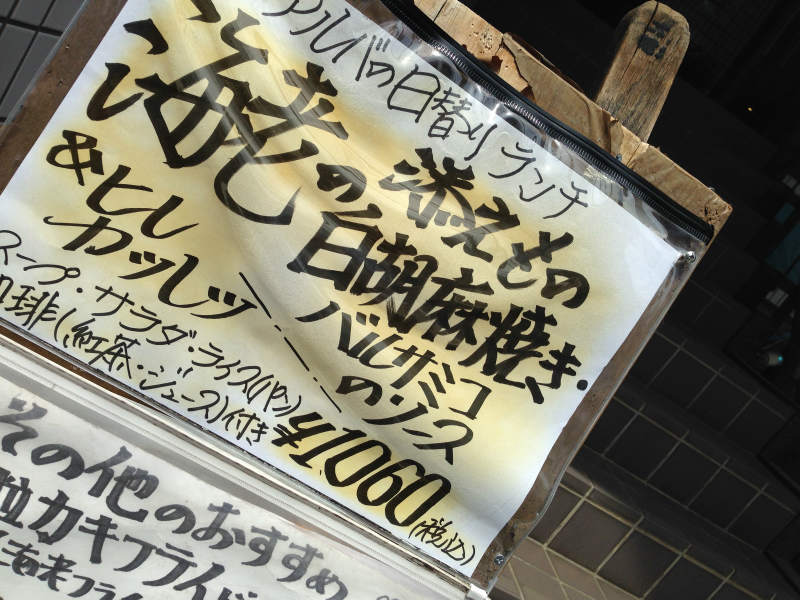 アルバの日替りランチ
海老の添えもの
白胡麻焼き
&ヒレカッレツ
バルサミコのソース
スープ・サラダ・ライス(パン)
珈琲(紅茶・ジュース)付き
¥1,060(税込)
その他のおすすめ
粒カキフライ
海老フライ